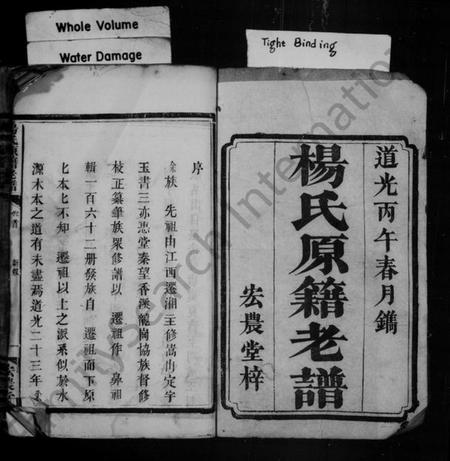 Whole Volume
Water Damage
Tight Binding
道光丙午春月鐫
楊氏原籍老譜
宏農堂梓
序
余族 先祖由江西遷湘主修嵩山定宇
玉書三亦思堂秦望香溪龍崗協族督修
枝正纂華族眾修譜以 遷祖作 鼻祖
輯一百六十二冊發族自 遷祖而下原
七本七不知 遷祖以上之派系似於水
源木本之道有未盡焉道光二十三年
FamilySearch International